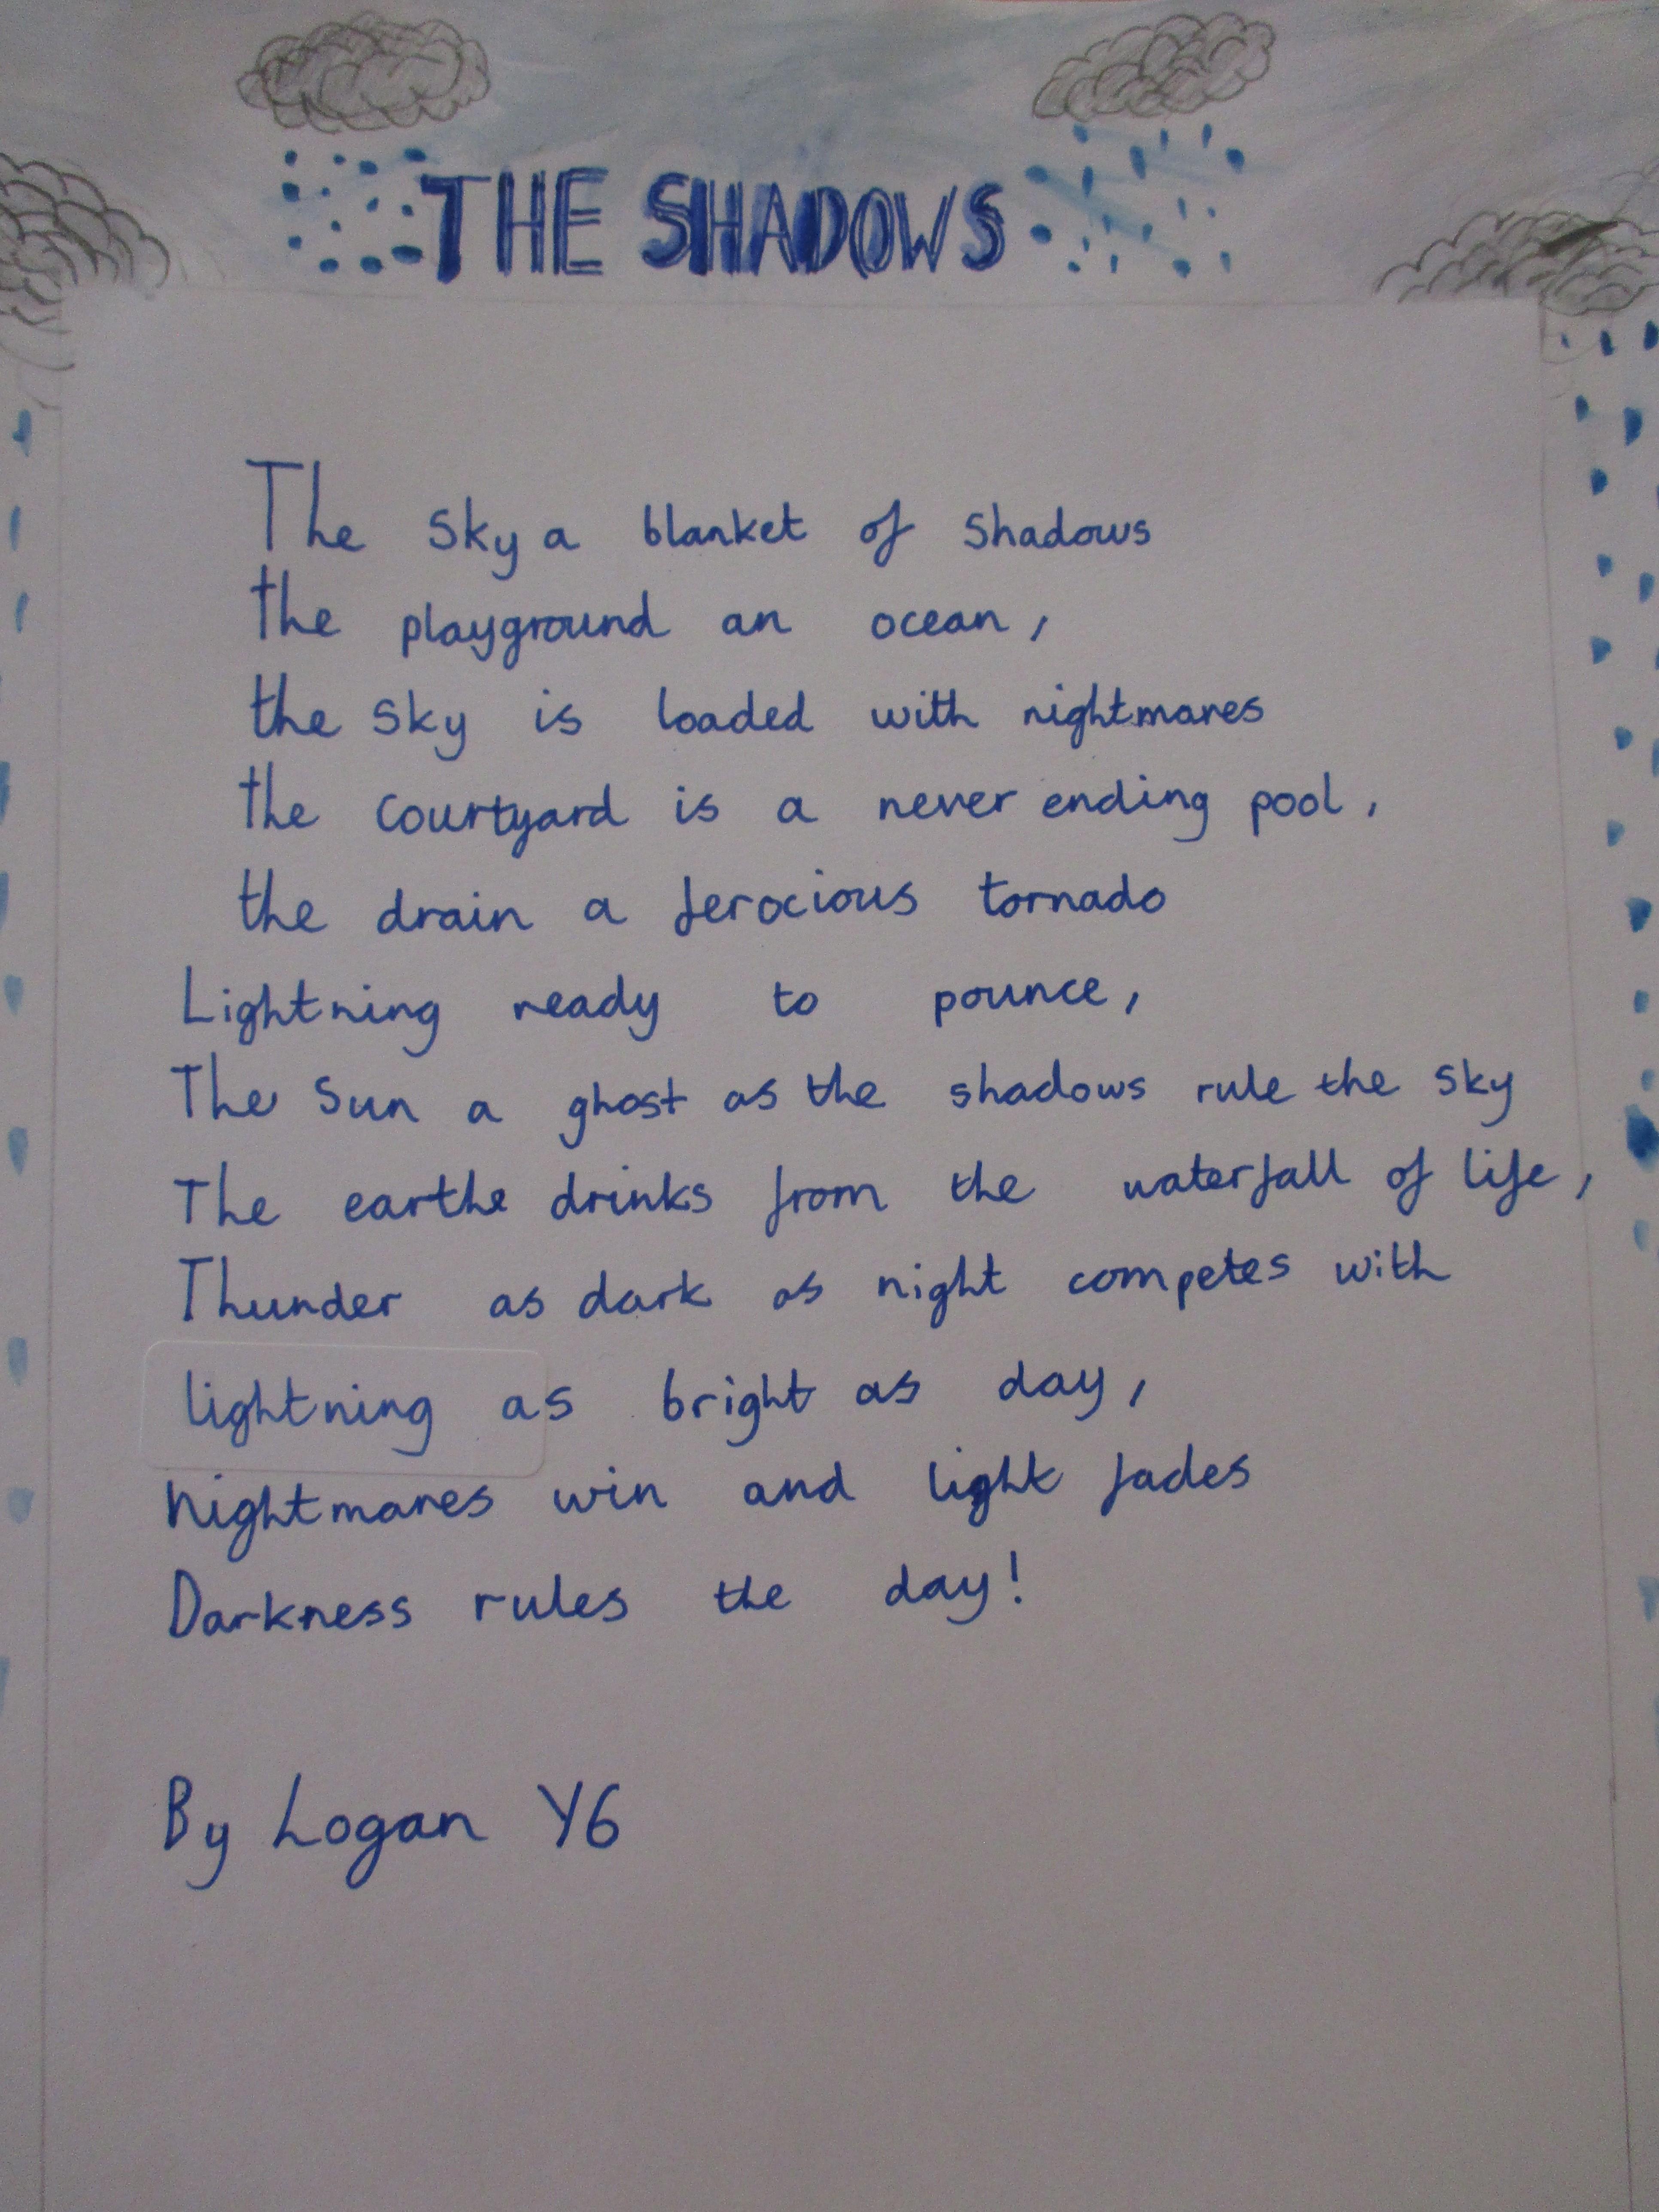 THE SHADOWS
The Sky a blanket of Shadows
the playground an ocean,
the sky is loaded with nightmares
the courtyard is a never ending pool,
the drain a ferocious tornado
Lightning ready to pounce,
The Sun a ghost as the shadows rule the sky
The earthe drinks from the waterfall of life,
Thunder as dark as night competes with
lightning as bright as day,
Nightmares win and light fades
Darkness rules the day!
By Logan Y6